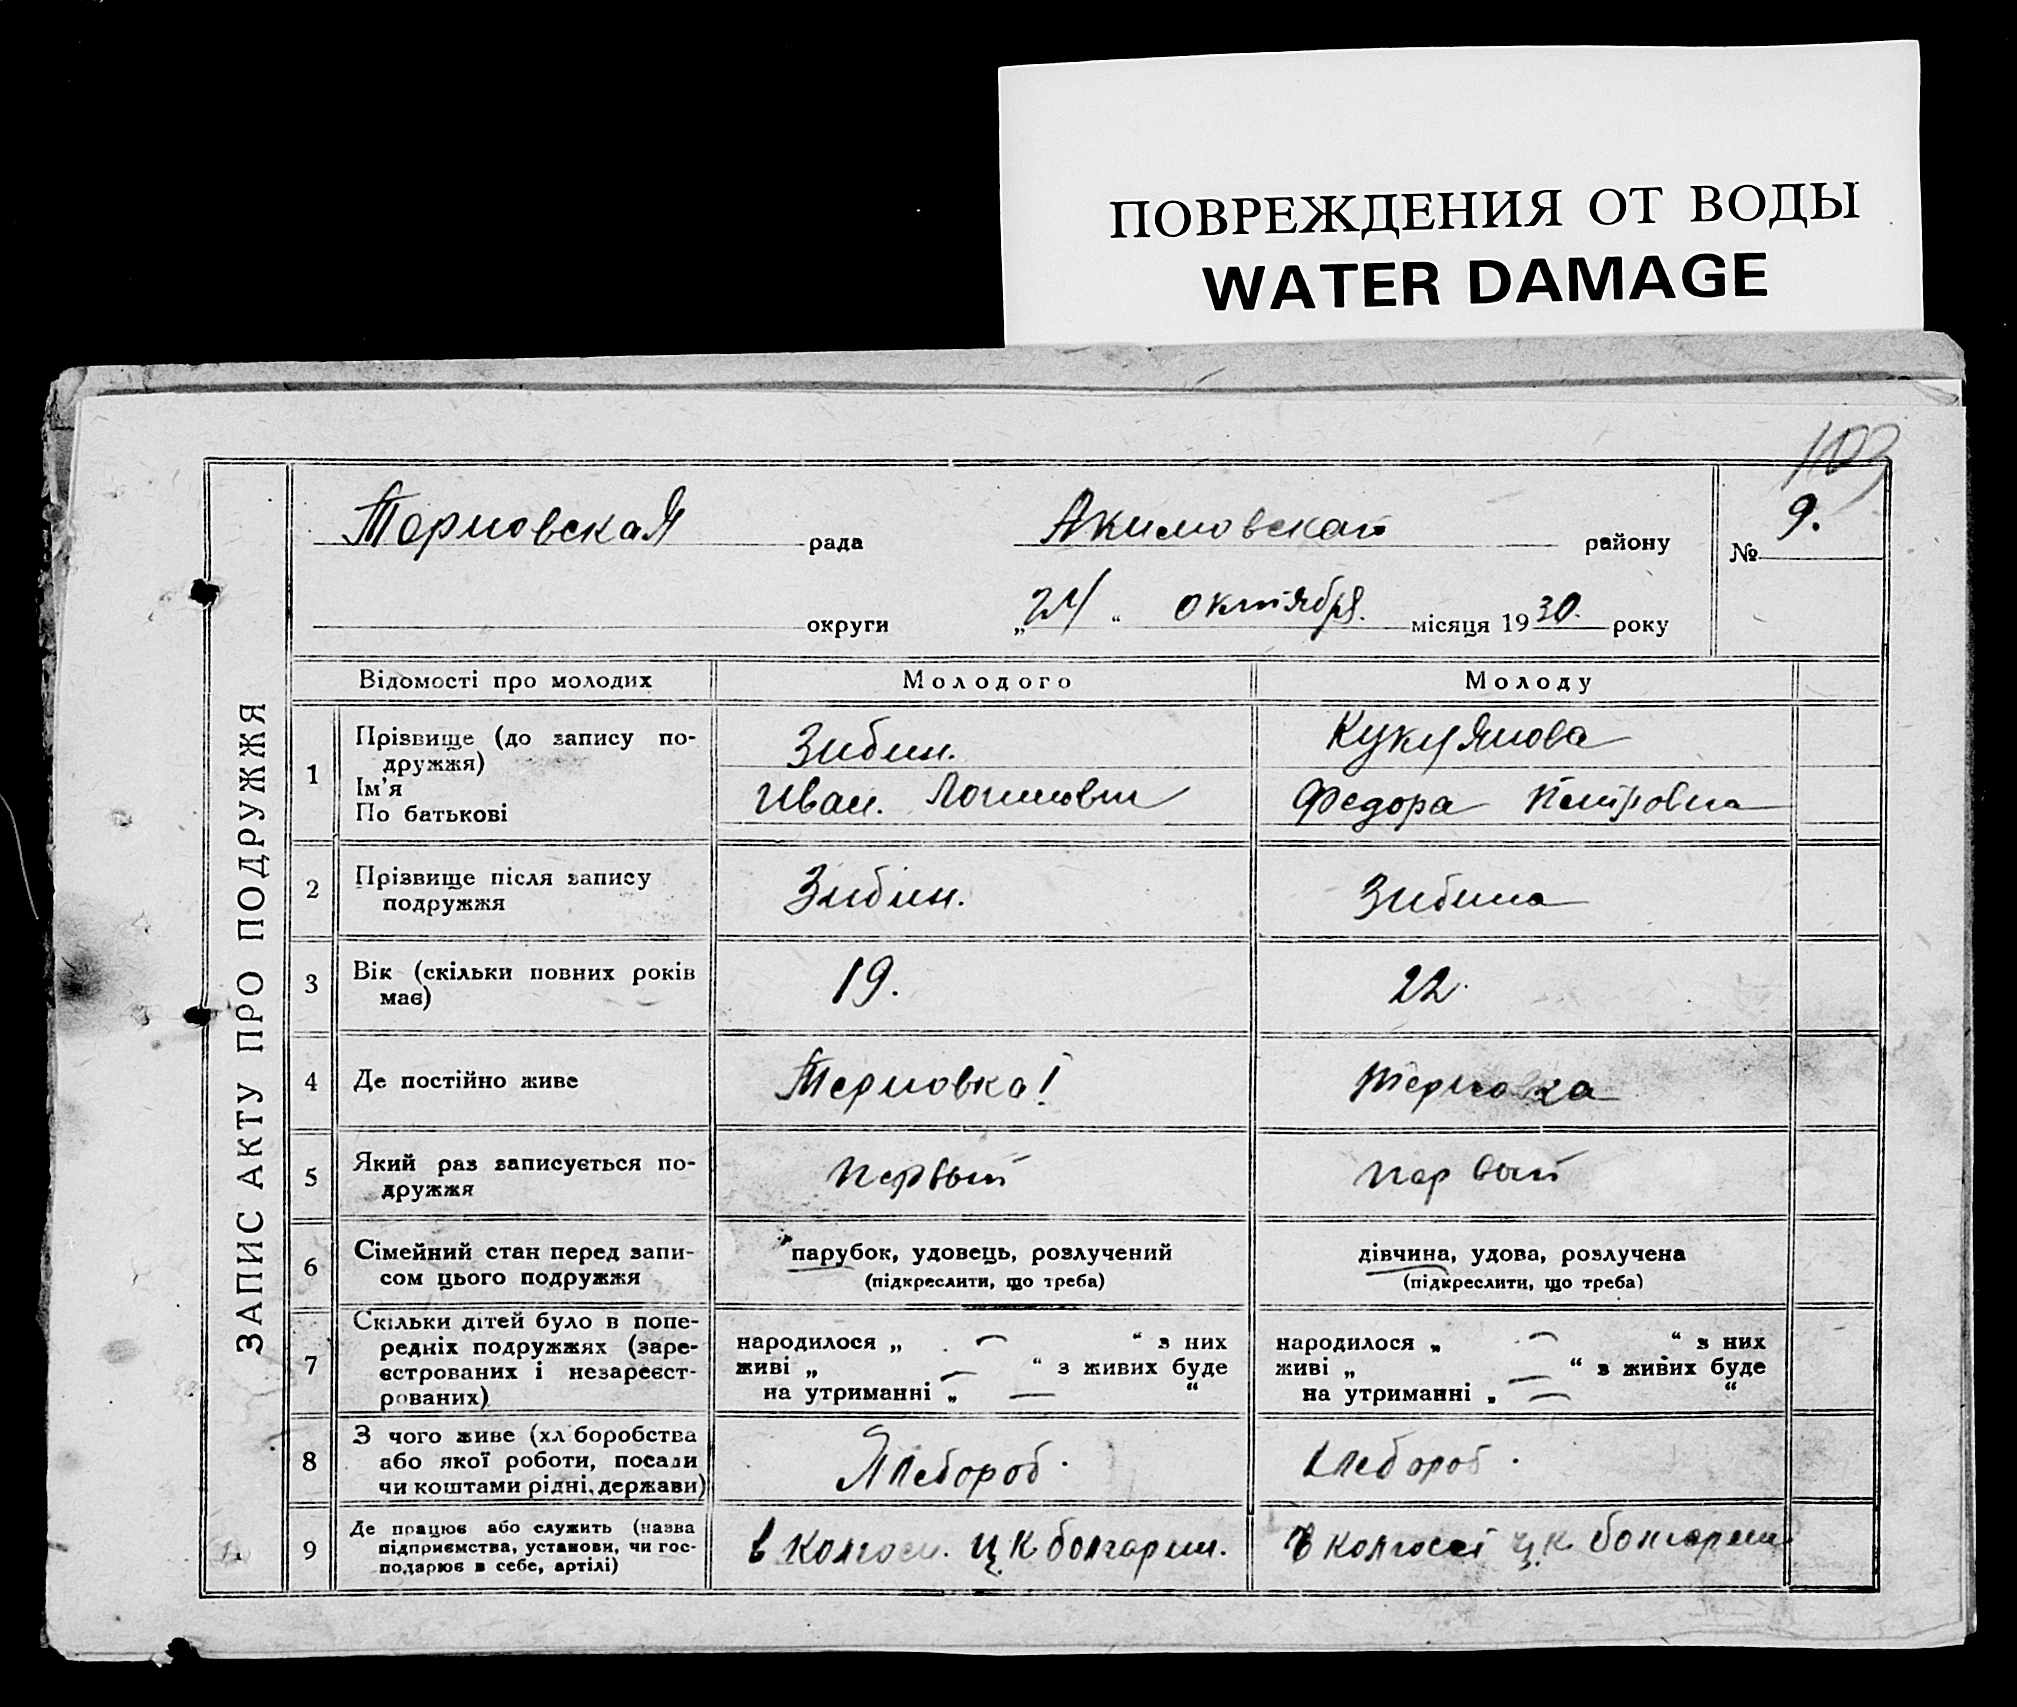 ПОВРЕЖДЕНИЯ ОТ ВОДЫ
WATER DAMAGE
103
ЗАПИС АКТУ ПРО ПОДРУЖЖЯ
Терновская рада Акимовскаго району № 9.
округи „24“ октября. місяця 1930. року
Відомості про молодих Молодого Молоду
1 Прізвище (до запису по-
дружжя)
Ім'я
По батькові
Зибин.
Иван. Логинович
Кукуянова
Федора Петровна
2 Прізвище після запису
подружжя
Зибин.
Зибина
3 Вік (скільки повних років
має)
19.
22.
4 Де постійно живе
Терновка!
Терновка
5 Який раз записується по-
дружжя
первый
первый
6 Сімейний стан перед запи-
сом цього подружжя
парубок, удовець, розлучений
(підкреслити, що треба)
дівчина, удова, розлучена
(підкреслити, що треба)
7 Скільки дітей було в попе-
редніх подружжях (заре-
єстрованих і незареєст-
рованих)
народилося „ — “ з них
живі „ — “ з живих буде
на утриманні „ — “
народилося „ — “ з них
живі „ — “ з живих буде
на утриманні „ — “
8 З чого живе (хліборобства
або якої роботи, посади
чи коштами рідні, держави)
Хлебороб.
хлебороб.
9 Де працює або служить (назва
підприємства, установи, чи гос-
подарює в себе, артілі)
в колгосп. Ц.К болгарии.
В колгоспі ц.к болгарии